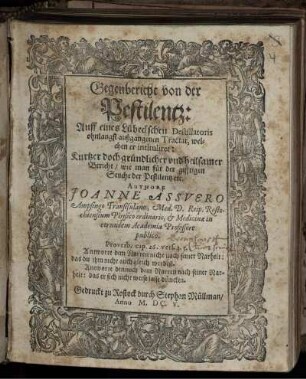 Gegenbericht von der
Pestilentz:
Auff eines Lübeckschen Destillatoris
ohnlangst außgangenen Tractat, wel-
chen er intituliret:
Kurtzer doch gründlicher vnd heilsamer
Bericht/ wie man für der gifftigen
Seuche der Pestilentz etc.
AUTHORE
JOANNE ASSVERO
Ampsingio Transisulano, Med. D. Reip. Rosto-
chiensium Physico ordinario, & Medicinæ in
eterundem Academia Professore
publico.
Proverb. cap. 26. vers. 4. 5.
Antworte dem Narren nicht nach seiner Narheit:
das du ihm nicht auch gleich werdest.
Antworte dennoch dem Narren nach seiner Nar-
heit: das er sich nicht weise lasse düncken.
Gedruckt zu Rostock durch Stephan Müllman/
Anno M. DC.